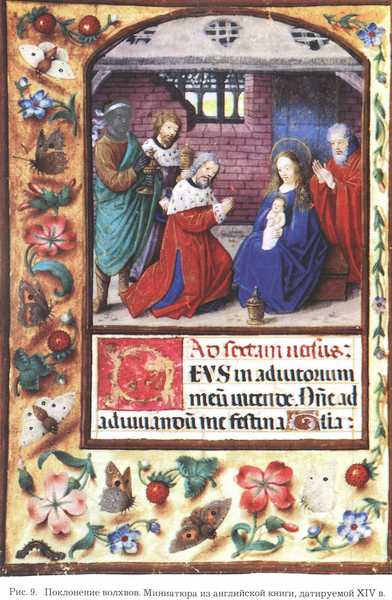 Ad sextam uersus:
DEVS in adiutorium
meū intende. Dñe ad
adiuuandū me festina Glia:
Рис. 9. Поклонение волхвов. Миниатюра из английской книги, датируемой XIV в.